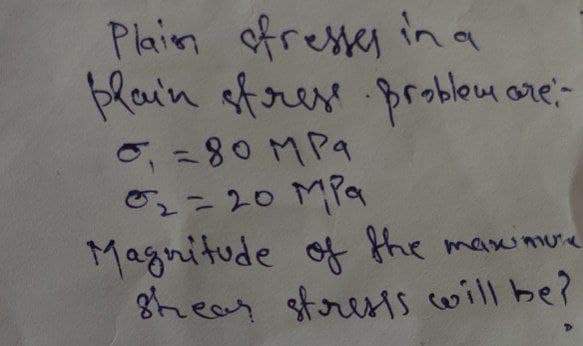 Plain stresses in a
plain stress problem are:-
σ₁ = 80 MPa
σ₂ = 20 MPa
Magnitude of the maximum
shear stress will be?